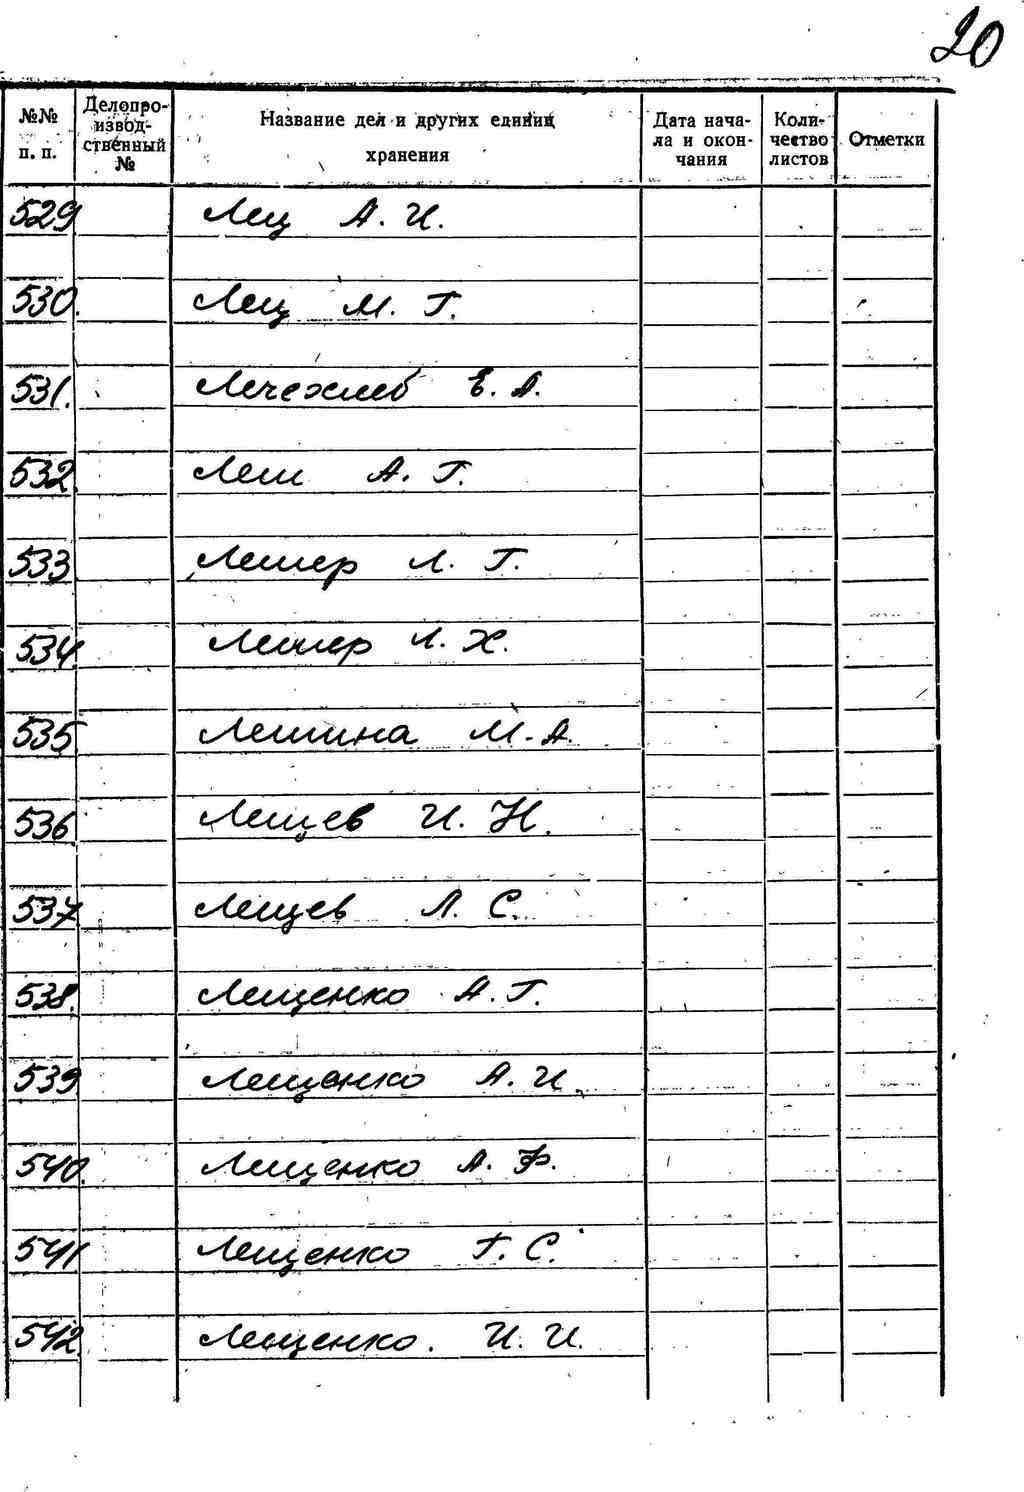 20
№№ п. п.
Делопро-
извод-
ственный
№
Название дел и других единиц
хранения
Дата нача-
ла и окон-
чания
Коли-
чество
листов
Отметки
529 Лец А. И.
530. Лец М. Г.
531. Лечехлеб Е. А.
532. Леш А. Г.
533 Лешер Л. Г.
534. Лешер Л. Х.
535 Лешина М. А.
536 Лещев И. Н.
537 Лещев Л. С.
538. Лещенко А. Г.
539 Лещенко А. И.
540. Лещенко А. Ф.
541 Лещенко Г. С.
542. Лещенко. И. И.